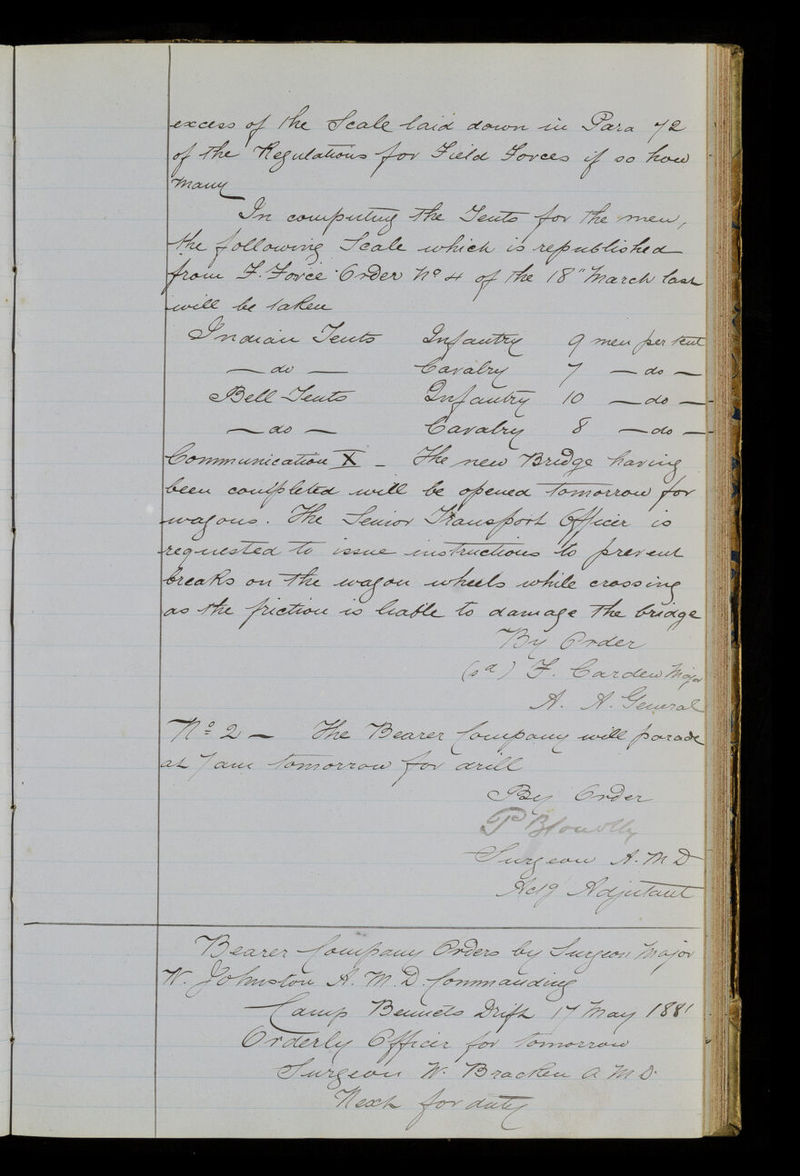 excess of the Scale laid down in Para 72
of the Regulations for Field Forces if so how
many
In computing the Tents for the men,
the following Scale which is republished
from F. Force Order No 4 of the 18" March last
will be taken
Indian Tents Infantry 9 men per tent
— do — Cavalry 7 — do —
Bell Tents Infantry 10 — do —
— do — Cavalry 8 — do —
Communication X — The new Bridge having
been completed will be opened tomorrow for
wagons. The Senior Transport Officer is
requested to issue instructions to prevent
breaks on the wagon wheels while crossing
as the friction is liable to damage the bridge
By Order
(sd) F. Carden Major
A. A. General
No 2 — The Bearer Company will parade
at 7 am tomorrow for drill
By Order
P B Conolly
Surgeon A. M D
Actg Adjutant
Bearer Company Orders by Surgeon Major
W. Johnston A. M. D. Commanding
Camp Bennets Drift 17 May 1881
Orderly Officer for tomorrow
Surgeon W. Bracken A M D.
Next for duty